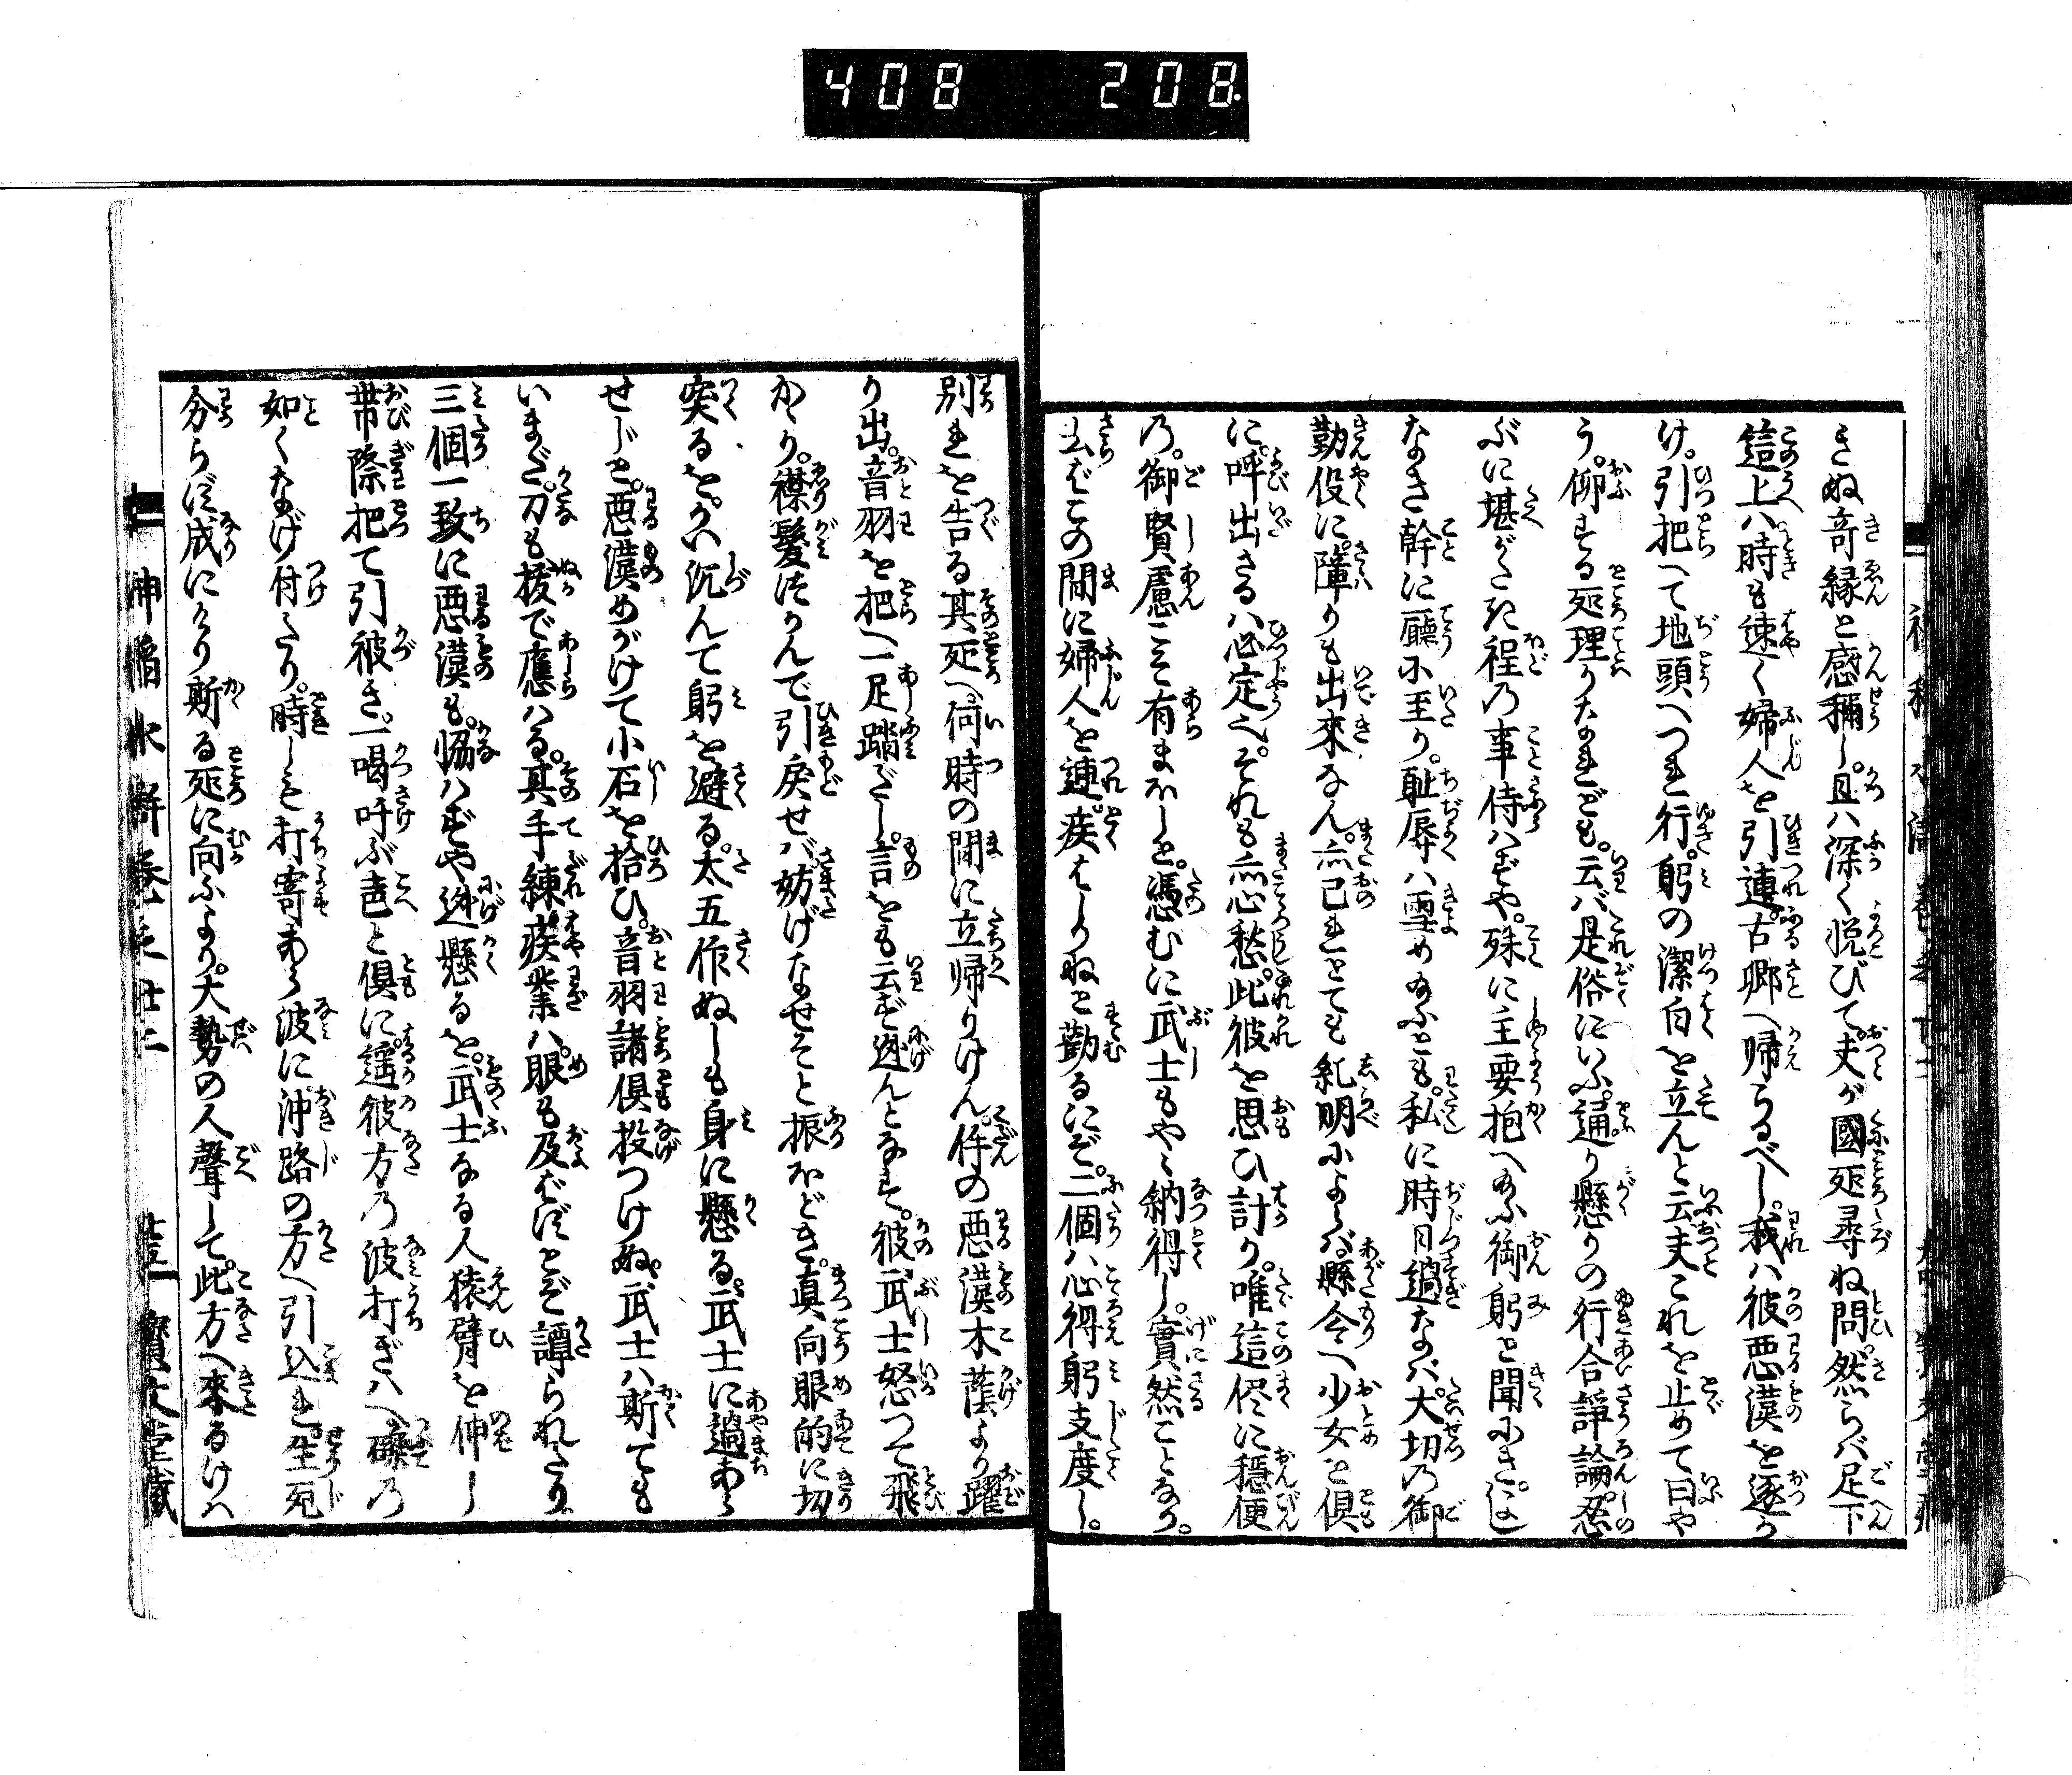 408 208
きぬ竒縁と感稱し。且ハ深く悦びて。丈が國所尋ね問。然らバ足下
這上ハ時も速く婦人を引連。古郷へ帰るべし。我ハ彼悪漢を逐か
け。引把へて地頭へつれ行。躬の潔白を立んと云。丈これを止めて曰や
う。仰する所理りなれども。云バ是俗にいふ。通り懸りの行合諍論。忍
ぶに堪がたき程の事侍ハずや。殊に主要抱へ給ふ御躬と聞にき。によし
なき幹に廳に至り。耻辱ハ雪め給ふとも。私に時日過なバ。大切の御
勤役に。障りも出來なん。亦己れとても糺明によらバ。縣令へ少女と倶
に。呼出さるハ必定也。それも亦心愁。此彼を思ひ計り。唯這侭に穏便
乃。御賢慮こそ有まほしと。憑むに武士もやゝ納得し。實然ことなり。
去ばこの間に婦人を連。疾はしりねと勸るにぞ。二個ハ心得躬支度し。
別れを告る其所へ。何時の間に立帰りけん。件の悪漢木蔭より躍
り出。音羽を把へ一足踏だし。言をも云ず迯んとなす。彼武士怒つて飛
かゝり。襟髮つかんで引戻せバ。妨げなせそと振ほどき。真向眼的に切
突るを。かい沉んて躬を避る。太五作ぬしも身に懸る。武士に過あら
せじと。悪漢めがけて小石を拾ひ。音羽諸倶投つけぬ。武士ハ斯ても
いまだ。刀も拔で應ハる。其手練疾業ハ。眼も及ばずとぞ譚られたり。
三個一致に悪漢も。協ハずや迯懸るを。武士なる人猿臂を伸し
帯際把て引被き。一喝呌ぶ声と倶に。遥彼方乃波打ぎハへ礫乃
如くなげ付たり。時しも打寄あら波に沖路の方へ引込れ生死
分らず成にけり。斯る所に向ふより。大勢の人聲して。此方へ來るけハ
神稻水滸巻之廿二 廿五 寶文堂藏